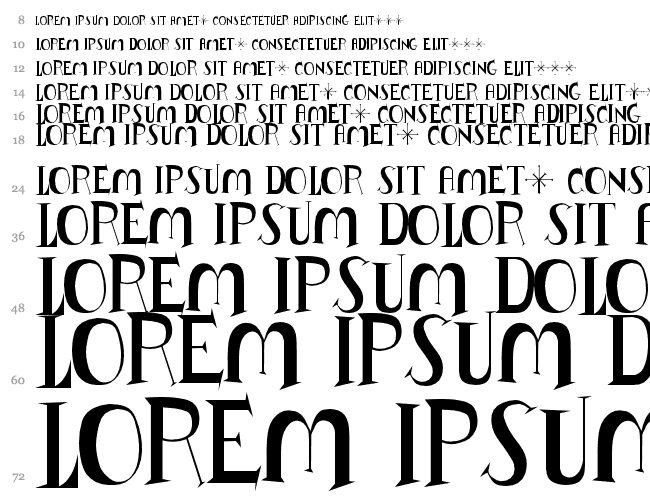 8 LOREM IPSUM DOLOR SIT AMET* CONSECTETUER ADIPISCING ELIT***
10 LOREM IPSUM DOLOR SIT AMET* CONSECTETUER ADIPISCING ELIT***
12 LOREM IPSUM DOLOR SIT AMET* CONSECTETUER ADIPISCING ELIT***
14 LOREM IPSUM DOLOR SIT AMET* CONSECTETUER ADIPISCING ELIT**
16 LOREM IPSUM DOLOR SIT AMET* CONSECTETUER ADIPISCING
18 LOREM IPSUM DOLOR SIT AMET* CONSECTETUER ADIPI
24 LOREM IPSUM DOLOR SIT AMET* CONS
36 LOREM IPSUM DOLOR SIT A
48 LOREM IPSUM DOLO
60 LOREM IPSUM D
72 LOREM IPSUM